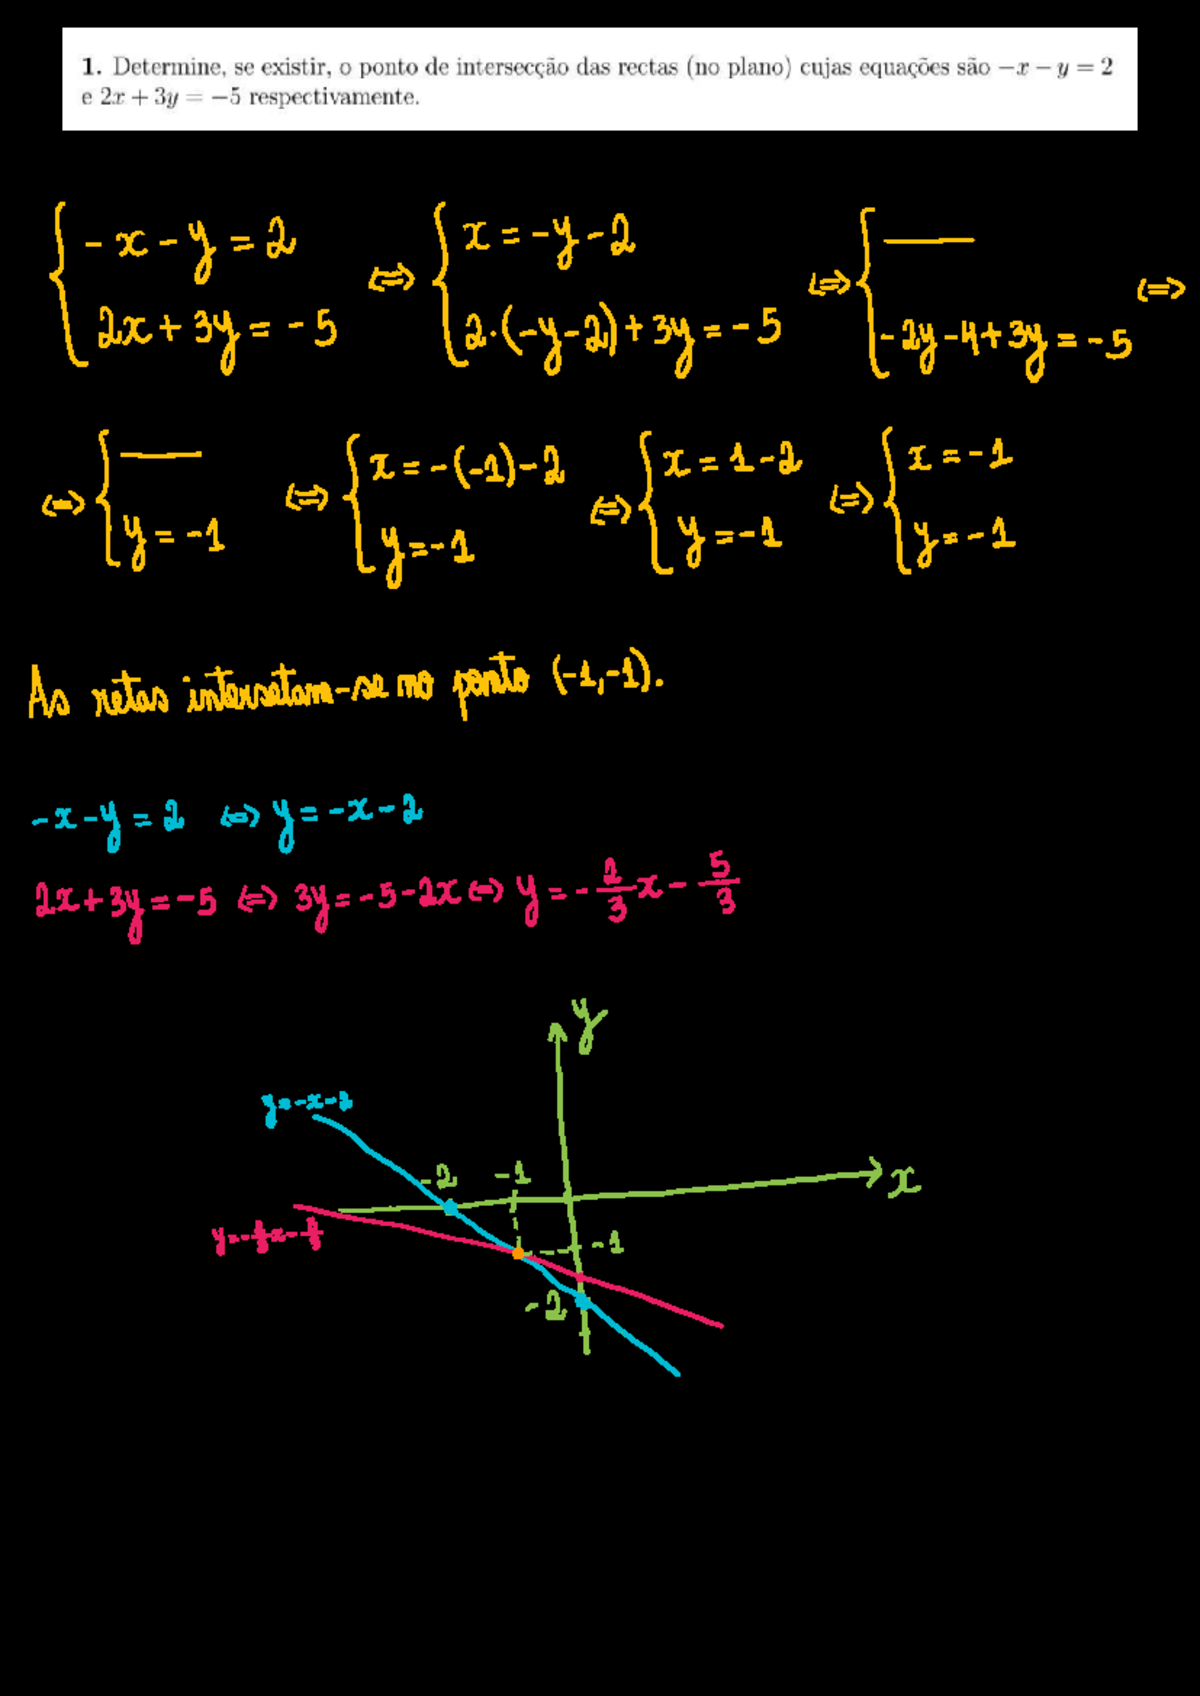 1. Determine, se existir, o ponto de intersecção das rectas (no plano) cujas equações são −x − y = 2
e 2x + 3y = −5 respectivamente.
{ -x-y=2 <=> { x=-y-2 <=> { —— <=>
2x+3y=-5 2·(-y-2)+3y=-5 -2y-4+3y=-5
<=> { —— <=> { x=-(-1)-2 <=> { x=1-2 <=> { x=-1
y=-1 y=-1 y=-1 y=-1
As retas intersetam-se no ponto (-1,-1).
-x-y=2 <=> y=-x-2
2x+3y=-5 <=> 3y=-5-2x <=> y=-2/3x-5/3
y
y=-x-2
-2 -1 x
y=-2/3x-5/3
-1
-2